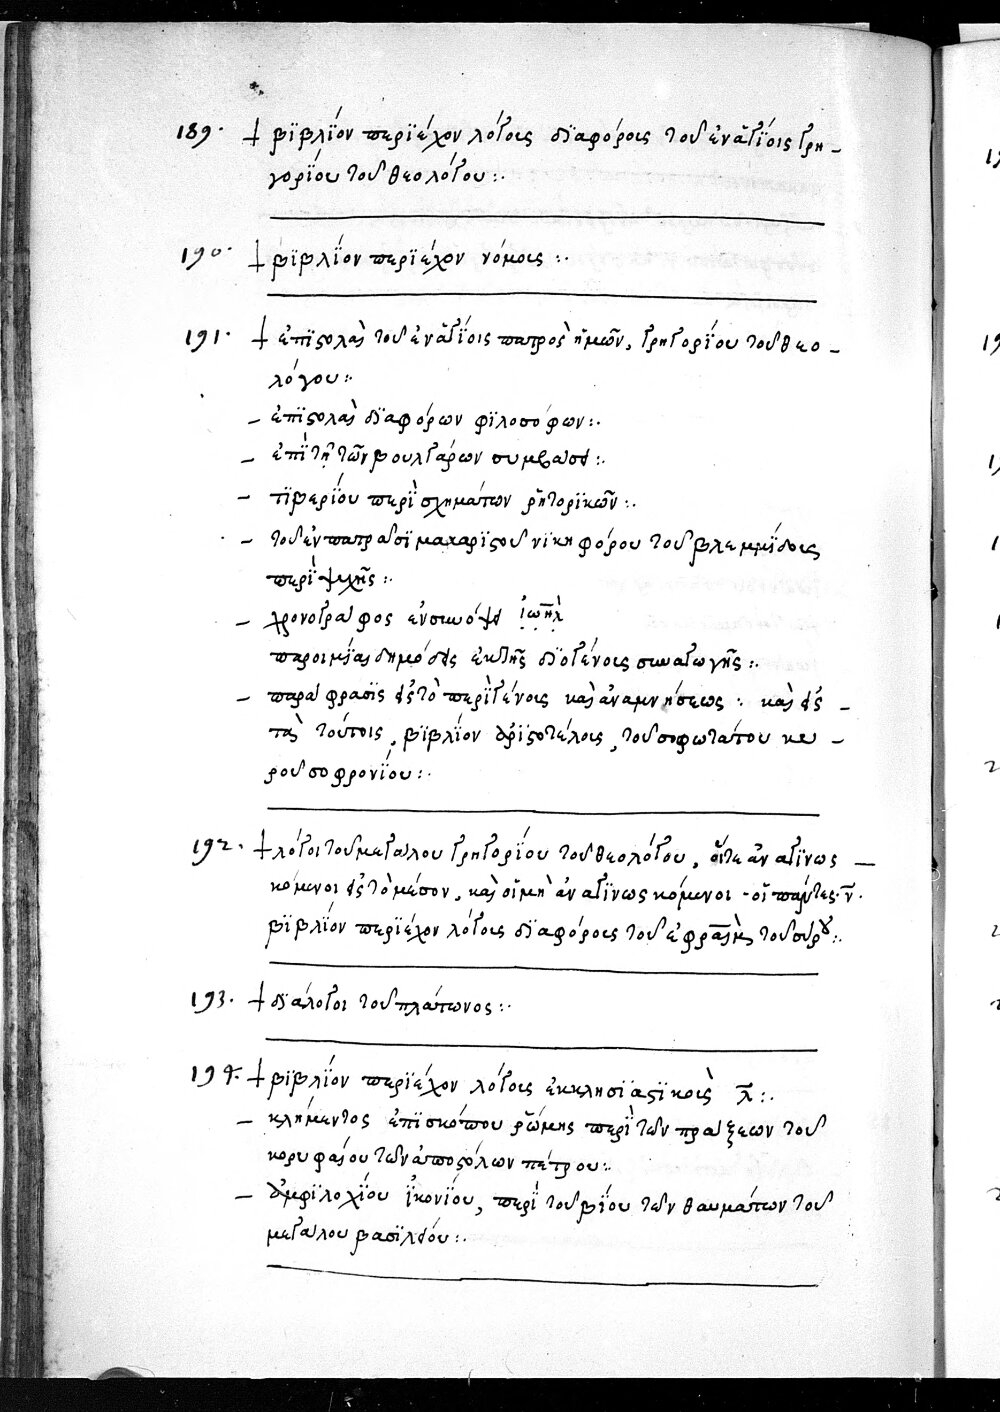 189. † βϊβλΐον περϊέχον λόγοις δϊαφόροις τοῦ ἐν ἁγΐοις γρη-
γορΐου τοῦ θεολόγου:.
190. † βϊβλΐον περϊέχον νόμοις:.
191. † ἐπϊστολαὶ τοῦ ἐν ἁγΐοις πατρὸς ἡμῶν, γρηγορΐου τοῦ θεο-
λόγου:.
- ἐπϊστολαὶ δϊαφόρων φϊλοσόφων:.
- ἐπὶ τῇ τῶν βουλγάρων συμβάσει:.
- τϊβερΐου περῒ σχημάτων ῥητορϊκῶν:.
- τοῦ ἐν πατράσϊ μακαρϊστοῦ νϊκηφόρου τοῦ βλεμμΐδοις
περῒ ψυχῆς:.
- χρονογράφος ἐν συνόψει ἰωήλ
παροιμΐαι δημόσεις ἐκ τῆς δϊογένοις συναγωγῆς:.
- παράφρασϊς εἰς τὸ περῒ γένοις καὶ ἀναμνήσεως: καὶ εἰς -
τὰ τούτοις, βϊβλΐον ἀρϊστοτέλοις, τοῦ σοφωτάτου κυ -
ροῦ σοφρονΐου:.
192. † λόγοι τοῦ μεγάλου γρηγορΐου τοῦ θεολόγου, οἵτε ἀναγϊνως -
κόμενοι εἰς τὸ μέσον, καὶ οἱ μὴ ἀναγϊνωσκόμενοι - οἱ πάντες. ν̅.
βϊβλΐον περϊέχον λόγοις δϊαφόροις τοῦ ἐφραῒμ τοῦ σύρου:.
193. † δϊάλογοι τοῦ πλάτωνος:.
194. † βϊβλΐον περϊέχον λόγοις ἐκκλησϊαστϊκοις λ̅:.
- κλήμεντος ἐπϊσκόπου ῥώμης περῒ τῶν πράξεων τοῦ
κορυφαίου τῶν ἀποστόλων πέτρου:.
- ἀμφϊλοχΐου ἰκονΐου, περῒ τοῦ βΐου τῶν θαυμάτων τοῦ
μεγάλου βασϊλείου:.